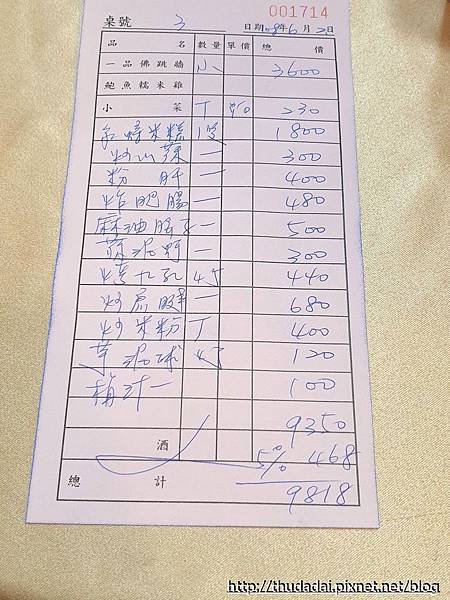 001714
桌號 3 日期 年6月2日
品名 數量 單價 總價
一品佛跳牆 小 3600
鮑魚糯米雞
小菜 丁 230
紅蟳米糕 1隻 1800
炒山蘇 一 300
粉肝 一 400
炸肥腸 一 480
麻油腰子 一 500
蒜泥蚵 一 300
烤九孔 4丁 440
炒 一 680
炒米粉 丁 400
芋泥球 4丁 120
梅汁 一 100
9350
酒 5% 468
總計 9818
http://thudadai.pixnet.net/blog